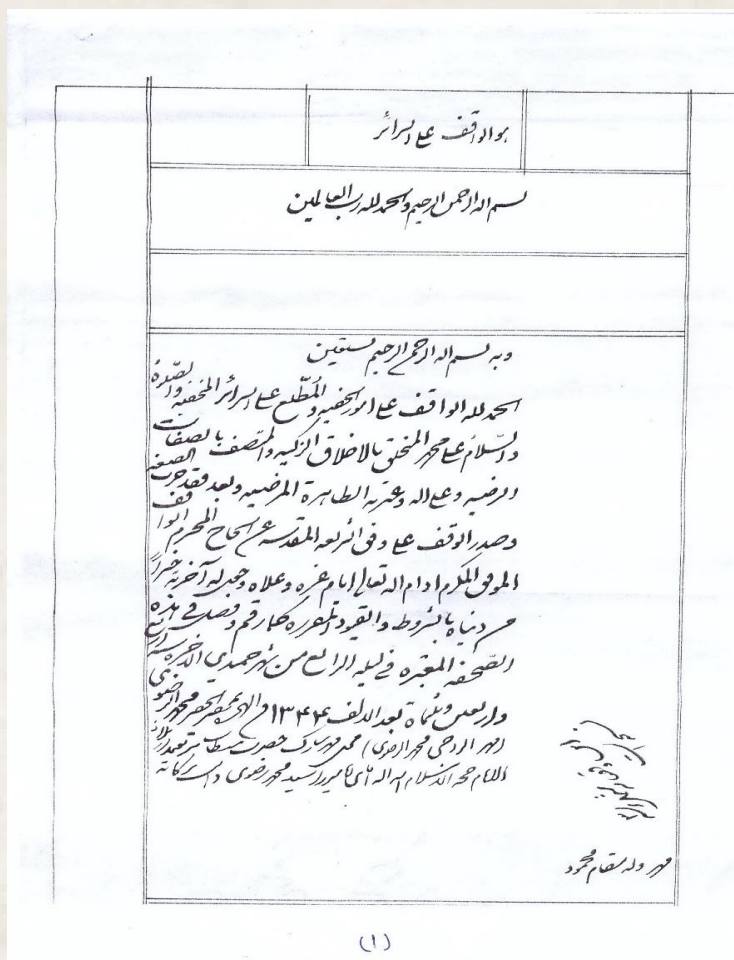 هو الواقف علی السرائر
بسم اله الرحمن الرحیم والحمد لله رب العالمین
وبه بسم اله الرحمن الرحیم نستعین
الحمد لله الواقف علی امور الخفیه والمُطّلع علی السرائر المخفیه والصّلوة
والسّلام علی محمد المتخلق بالاخلاق الزکیه والمتصف بالصفات
الرضیه وعلی اله وعترته الطاهرة المرضیه وبعد فقد جرت الصیغه
وصدر الوقف علی وفق الشریعه المقدسه عن الحاج المحترم الواقف
الموفق المکرم ادام اله تعالی ایام عزه وعلاه وجعل آخرته خیراً
من دنیاه بالشروط والقیود المقرره کما رقم وفصل فی هذه
الصّحیفه المعتبره فی لیله الرابع من شهر جمیدی الاخره سنه اربع
واربعین وثلثماة بعد الالف ۱۳۴۴ محمد الرضوی
(مهر الراجی محمد الرضوی) محل مهر مبارک حضرت
الانام حجة الاسلام ایه اله آقای آقا میرزا سید محمد رضوی دامت برکاته
مهر وله مقام محمود
(۱)